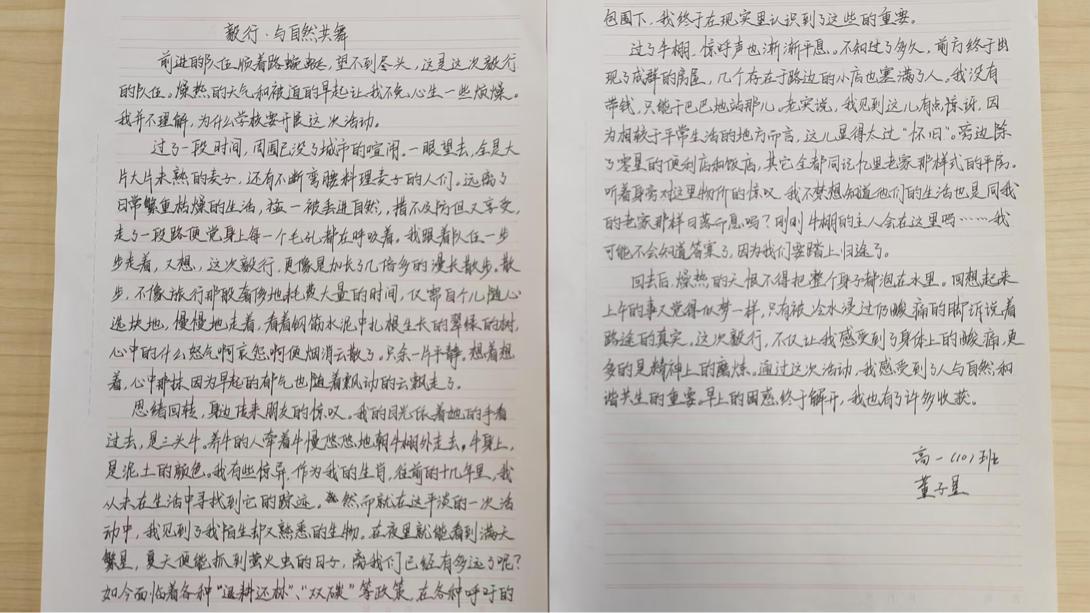 毅行·与自然共舞
前进的队伍顺着路蜿蜒，望不到尽头，这是这次毅行
的队伍。燥热的天气和被迫的早起让我不免心生一些烦燥。
我并不理解，为什么学校要开展这次活动。
过了一段时间，周围已没了城市的喧闹。一眼望去，全是大
片大片未熟的麦子，还有不断弯腰料理麦子的人们。远离了
日常繁重枯燥的生活，猛一被丢进自然，措不及防但又享受，
走了一段路便觉身上每一个毛孔都在呼吸着。我跟着队伍一步
步走着，又想，这次毅行，更像是加长了几倍多的漫长散步。散
步，不像旅行那般奢侈地耗费大量的时间，仅需自个儿随心
选块地，慢慢地走着，看着钢筋水泥中扎根生长的翠绿的树，
心中的什么怒气啊哀怨啊便烟消云散了。只余一片平静。想着想
着，心中那抹因为早起的郁气也随着飘动的云飘走了。
思绪回转，身边传来朋友的惊叹。我的目光依着她的手看
过去，是三头牛。养牛的人牵着牛慢悠悠地朝牛棚外走去。牛身上，
是泥土的颜色。我有些惊异，作为我的生肖，在前的十几年里，我
从未在生活中寻找到它的踪迹。然而就在这平淡的一次活
动中，我见到了我陌生却又熟悉的生物。在夜里就能看到满天
繁星，夏天便能抓到萤火虫的日子，离我们已经有多远了呢？
如今面临着各种“退耕还林”、“双碳”等政策，在各种呼吁的
包围下，我终于在现实里认识到了这些的重要。
过了牛棚，惊呼声也渐渐平息。不知过了多久，前方终于出
现了成群的房屋，几个存在于路边的小店也塞满了人。我没有
带钱，只能干巴巴地站那儿。老实说，我见到这儿有点惊讶，因
为相较于平常生活的地方而言，这儿显得太过“怀旧”。旁边除
了零星的便利店和饭店，其它全都同记忆里老家那样式的平房。
听着身旁对这里物价的惊叹，我不禁想知道他们的生活也是同我
的老家那样日落而息吗？刚刚牛棚的主人会在这里吗……我
可能不会知道答案了，因为我们要踏上归途了。
回去后，燥热的天恨不得把整个身子都泡在水里。回想起来
上午的事又觉得似梦一样，只有被冷水浸过仍酸痛的脚诉说着
路途的真实。这次毅行，不仅让我感受到了身体上的酸痛，更
多的是精神上的磨炼。通过这次活动，我感受到了人与自然和
谐共生的重要。早上的困惑终于解开，我也有了许多收获。
高一（10）班
董子星